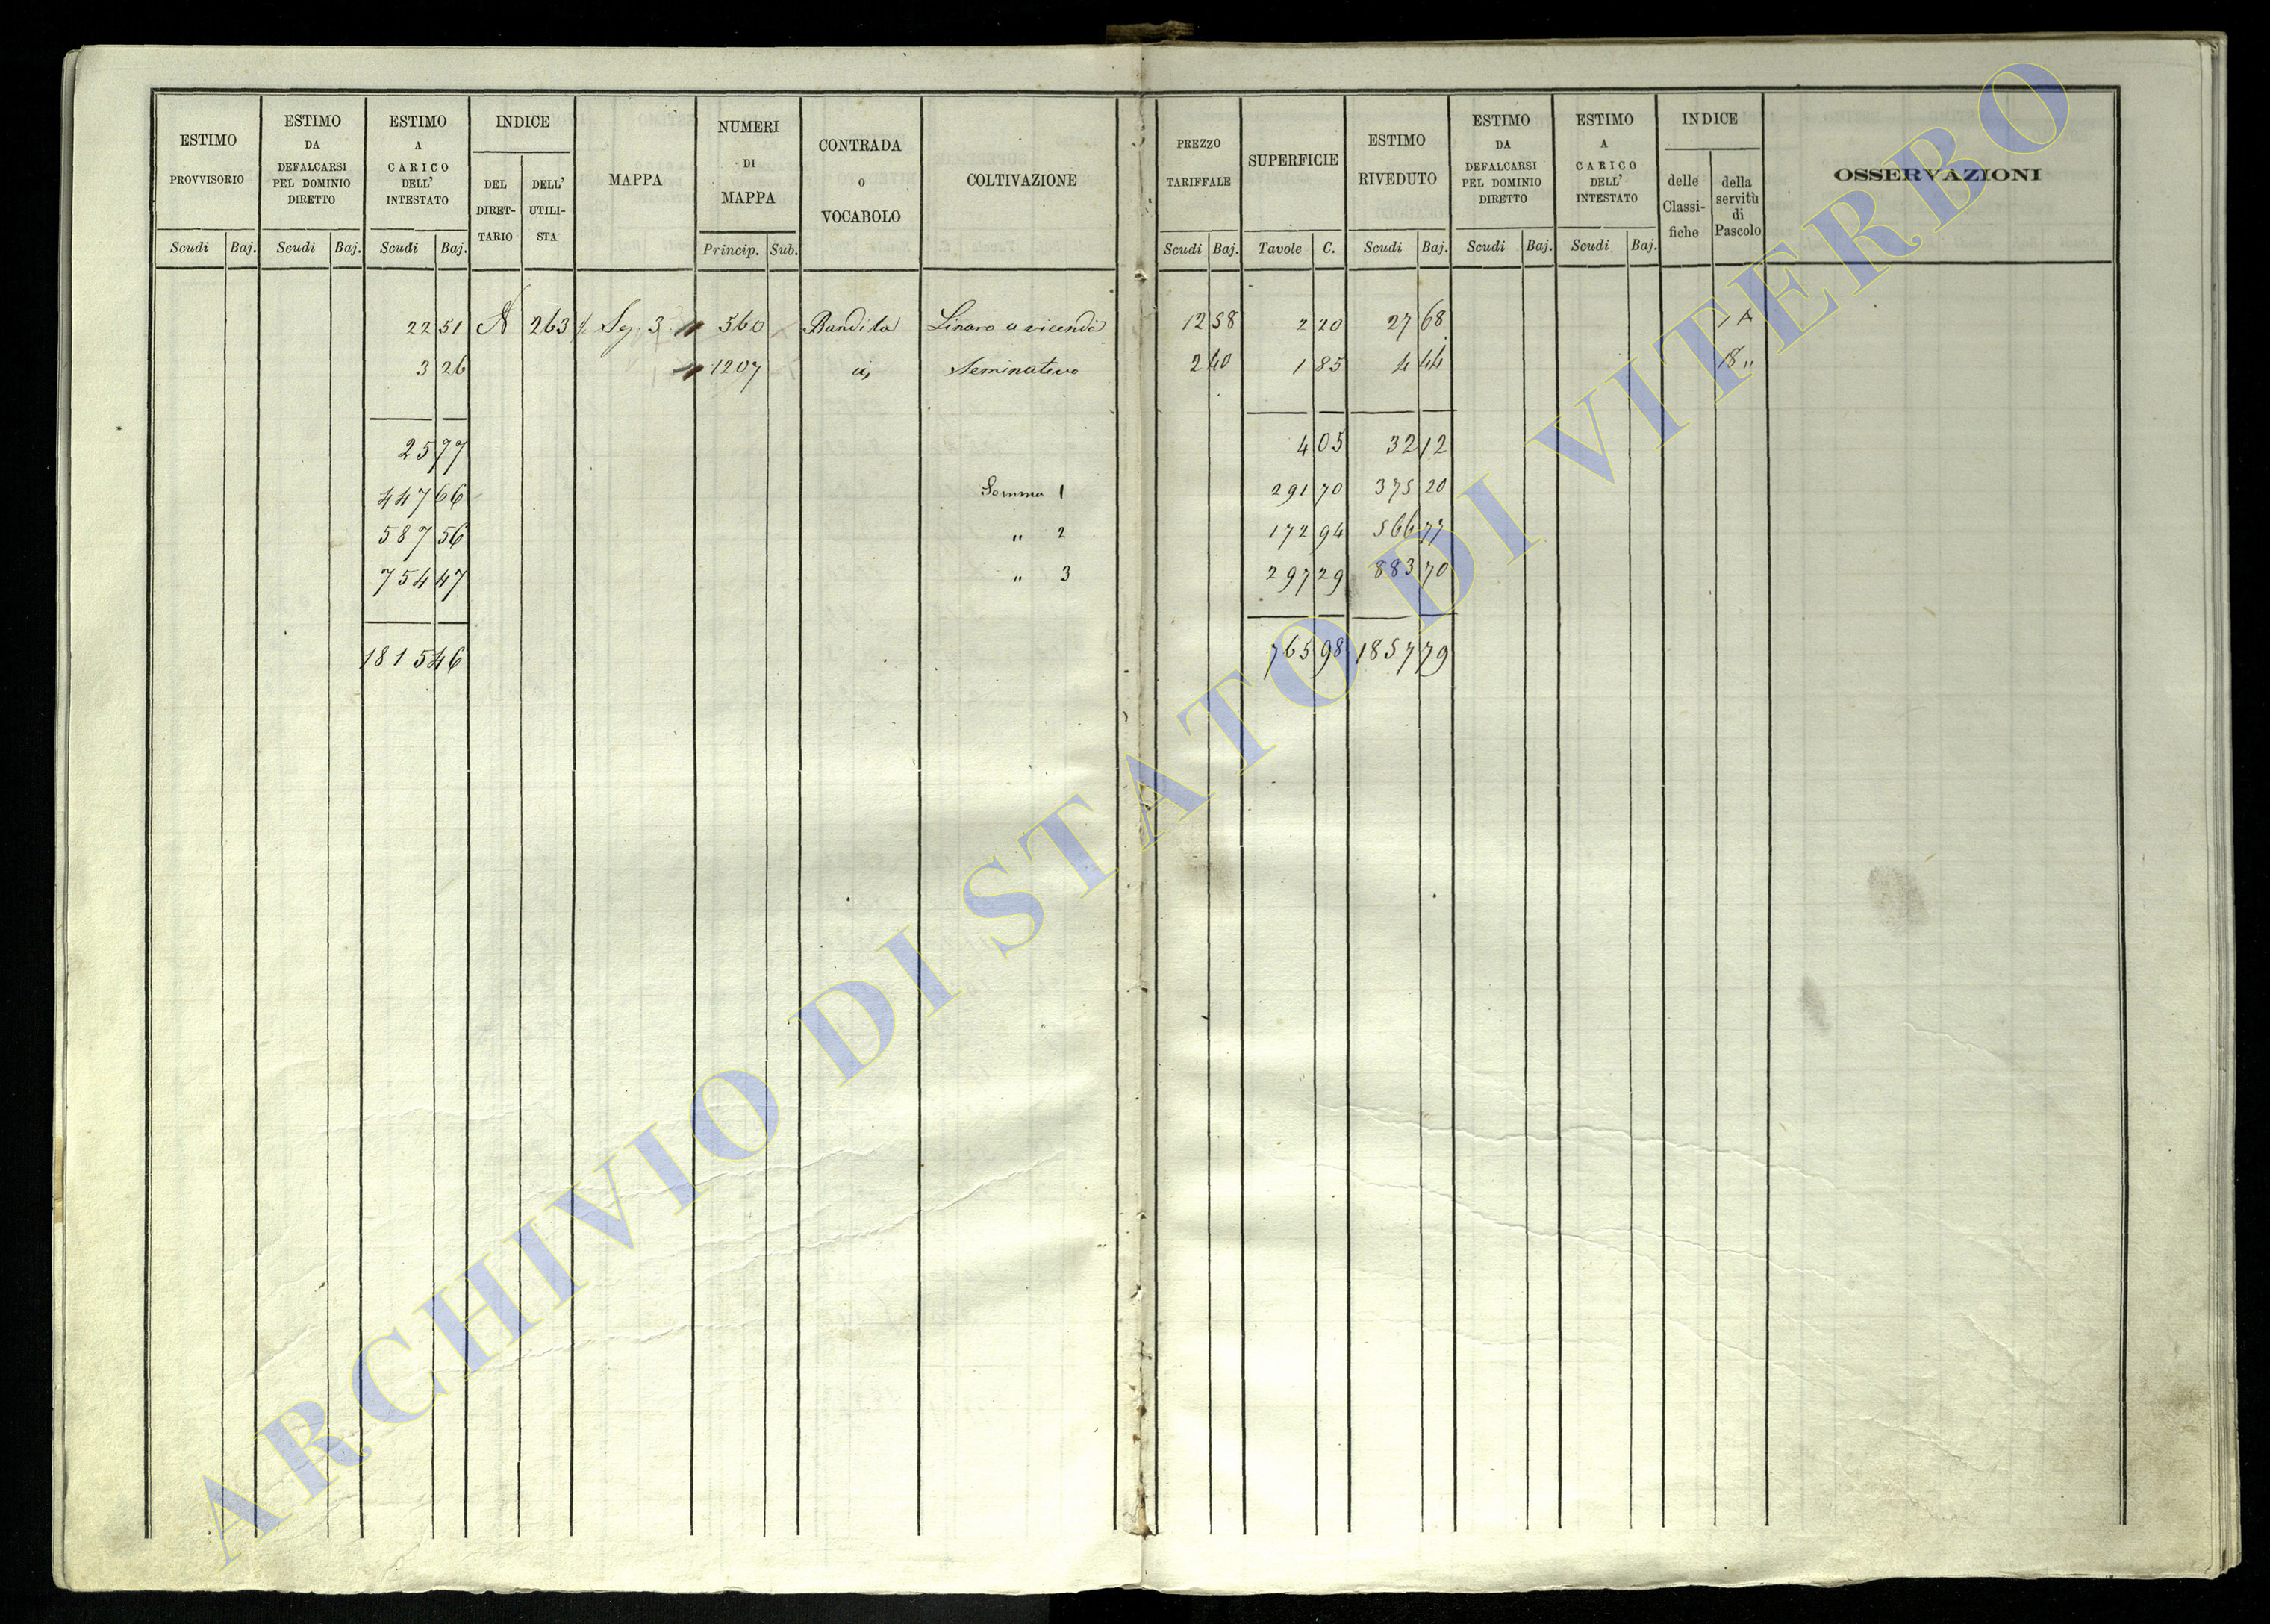 ESTIMO PROVVISORIO
Scudi Baj.
ESTIMO DA DEFALCARSI PEL DOMINIO DIRETTO
Scudi Baj.
ESTIMO A CARICO DELL' INTESTATO
Scudi Baj.
INDICE
DEL DIRET- TARIO
DELL' UTILI- STA
MAPPA
NUMERI DI MAPPA
Princip. Sub.
CONTRADA o VOCABOLO
COLTIVAZIONE
PREZZO TARIFFALE
Scudi Baj.
SUPERFICIE
Tavole C.
ESTIMO RIVEDUTO
Scudi Baj.
ESTIMO DA DEFALCARSI PEL DOMINIO DIRETTO
Scudi Baj.
ESTIMO A CARICO DELL' INTESTATO
Scudi Baj.
INDICE
delle Classi- fiche
della servitù di Pascolo
OSSERVAZIONI
22 51 A 263 Sez. 3 560 Bandita Linaro a vicenda 12 58 2 20 27 68
3 26 1207 Seminativo 2 40 1 85 4 44 18 "
25 77 4 05 32 12
447 66 Somma 1 291 70 375 20
587 56 " 2 172 94 566 77
754 47 " 3 297 29 883 70
1815 46 765 98 1857 79
ARCHIVIO DI STATO DI VITERBO